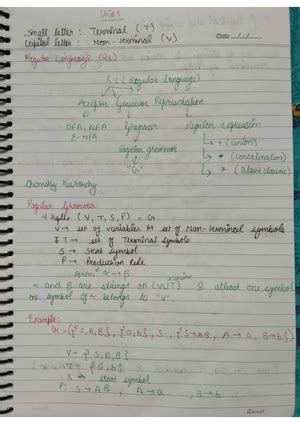 Unit 3
Small letter : Terminal (T)
Capital letter : Non-terminal (V)
Date __/__/__
Regular Language (RL)
RL (Regular Language)
Acceptor Generator Representation
DFA, NFA Grammar Regular Expression
ε-NFA
+ (union)
Regular grammar
• (concatenation)
"G"
* (kleene closure)
Chomsky Hierarchy
Regular Grammar
4 tuples (V, T, S, P) = G
V → set of variables or set of Non-terminal symbols
T → set of Terminal symbols
S → Start symbol
P → Production Rule
form α → β
α and β are strings on (VUT) & atleast one symbol
one symbol of α belongs to "V".
Example:
G = ({S, A, B}, {a, b}, S, {S → AB, A → a, B → b})
V = {S, A, B}
T = {a, b}
S → start symbol
P: S → AB, A → a, B → b